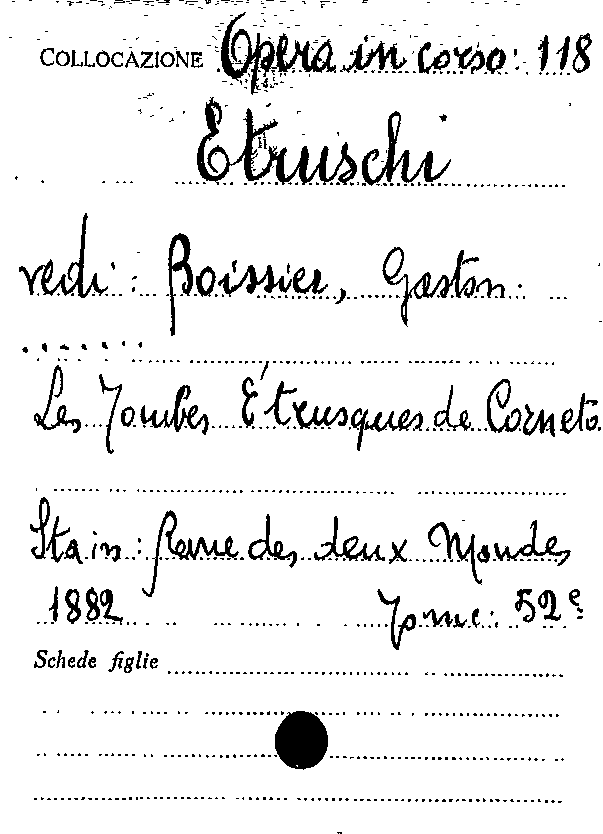 COLLOCAZIONE Opera in corso: 118
Etruschi
vedi: Boissier, Gaston.
Les Tombes Étrusques de Corneto.
Sta in: Revue des deux Mondes
1882 Tome: 52e
Schede figlie